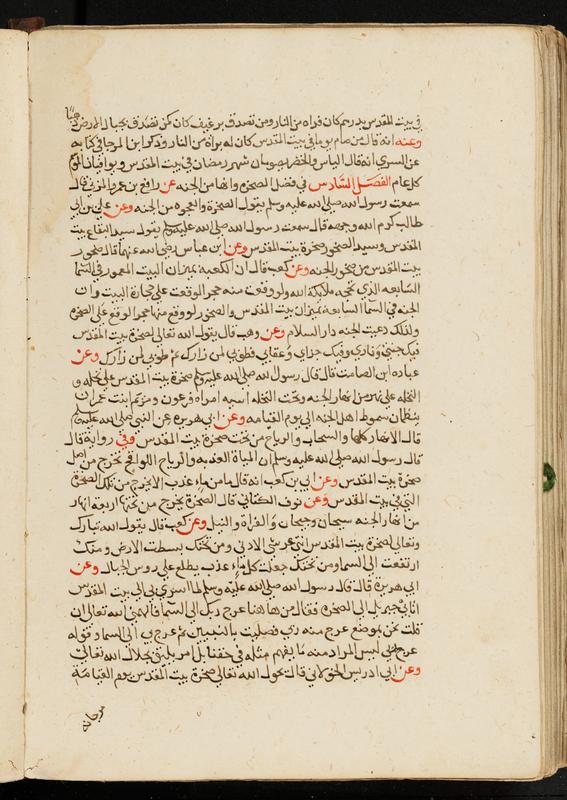 في بيت المقدس بدرهم كان فداه من النار ومن تصدق برغيف كان كمن تصدق بجبال الارض ذهبا
وعنه انه قال من صام يوما في بيت المقدس كان له براة من النار وذكر ابن المرجا في كتابه
عن السري انه قال الياس والخضر يصومان شهر رمضان في بيت المقدس ويوافيان الموسم
كل عام الفصل السادس في فضل الصخرة وانها من الجنه عن رافع بن عمرو المزني قال
سمعت رسول الله صلى الله عليه وسلم يقول الصخرة والعجوه من الجنه وعن علي بن ابي
طالب كرم الله وجهه قال سمعت رسول الله صلى الله عليه وسلم يقول سيد البقاع بيت
المقدس وسيد الصخور صخرة بيت المقدس وعن ابن عباس رضي الله عنهما قال صخرة
بيت المقدس من صخور الجنه وعن كعب قال ان الكعبة بميزان البيت المعمور في السما
السابعه الذي تحجه ملايكة الله ولو وقعت منه حجر لوقعت على حجارة البيت وان
الجنه في السما السابعه بميزان بيت المقدس والصخور لو وقع منها حجر لوقع على الصخرة
ولذلك دعيت الجنه دار السلام وعن وهب قال يقول الله تعالى لصخرة بيت المقدس
فيك جنتي وناري وفيك جزاي وعقابي فطوبى لمن زارك ثم طوبى لمن زارك وعن
عباده ابن الصامت قال قال رسول الله صلى الله عليه وسلم صخرة بيت المقدس على نخله و
النخله على نهر من انهار الجنه وتحت النخله آسيه امراة فرعون ومريم ابنت عمران
ينظمان سموط اهل الجنه الى يوم القيامه وعن ابي هريره عن النبي صلى الله عليه وسلم
قال الانهار كلها والسحاب والرياح من تحت صخرة بيت المقدس وفي رواية قال
قال رسول الله صلى الله عليه وسلم ان المياة العذبه والرياح اللواقح تخرج من اصل
صخرة بيت المقدس وعن ابي بن كعب انه قال ما من ماء عذب الا يخرج من تلك الصخرة
التي في بيت المقدس وعن نوف الكتاني قال الصخرة يخرج من تحتها اربعة انهار
من انهار الجنه سيحان وجيحان والفراة والنيل وعن كعب قال يقول الله تبارك
وتعالى لصخرة بيت المقدس انتي عرشي الادنى ومن تحتك بسطت الارض ومنك
ارتفعت الى السما ومن تحتك جعلت كل ماء عذب يطلع على روس الجبال وعن
ابي هريرة قال قال رسول الله صلى الله عليه وسلم لما اسري بي الى بيت المقدس
اتا بي جبريل الى الصخره فقال من هاهنا عرج ربك الى السما فالهمني الله تعالى ان
قلت نحن بموضع عرج منه ربي فصليت بالنبيين ثم عرج بي الى السما وقوله
عرج ربي ليس المراد منه ما يفهم مثله في حقنا بل امر يليق بجلال الله تعالى
وعن ابي ادريس الخولاني قال يحول الله تعالى صخرة بيت المقدس يوم القيامة
مرجانه